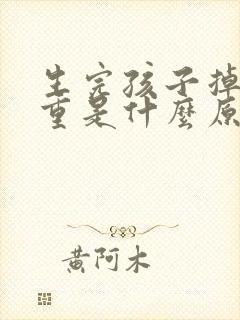 生完孩子掉
重是什麼原
黄阿木